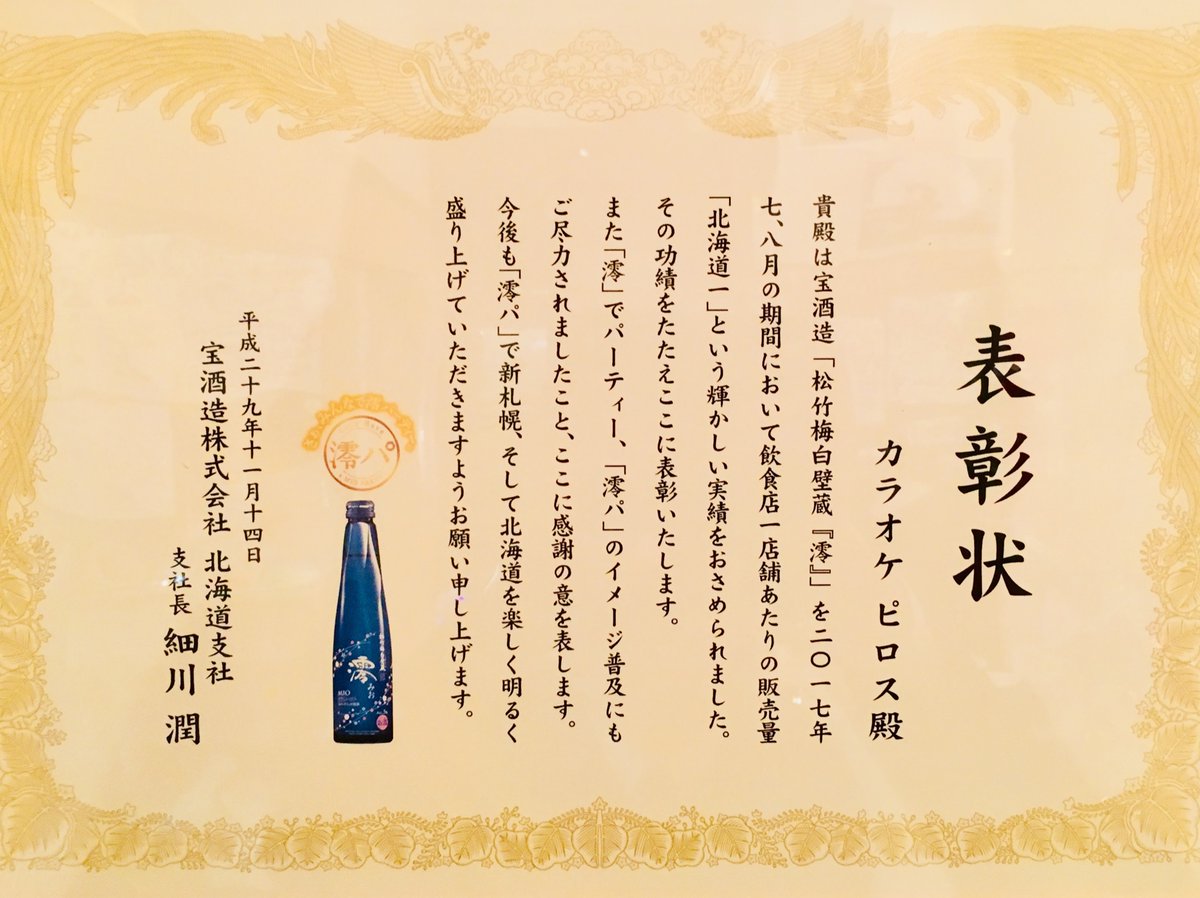 表彰状
カラオケ ピロス殿
貴殿は宝酒造「松竹梅白壁蔵『澪』」を二〇一七年
七、八月の期間において飲食店一店舗あたりの販売量
「北海道一」という輝かしい実績をおさめられました。
その功績をたたえここに表彰いたします。
また「澪」でパーティー、「澪パ」のイメージ普及にも
ご尽力されましたこと、ここに感謝の意を表します。
今後も「澪パ」で新札幌、そして北海道を楽しく明るく
盛り上げていただきますようお願い申し上げます。
澪パ
澪
みお
MIO
平成二十九年十一月十四日
宝酒造株式会社 北海道支社
支社長 細川 潤